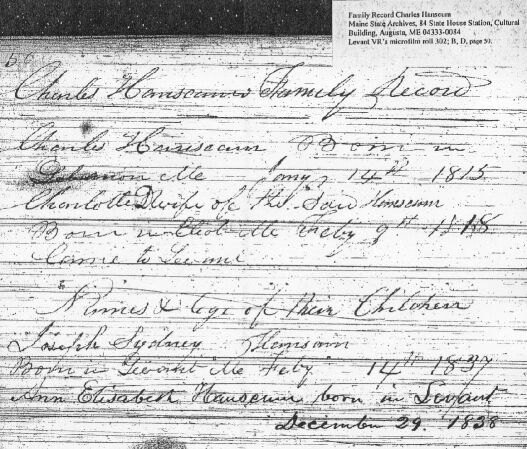 Family Record Charles Hanscum
Maine State Archives, 84 State House Station, Cultural
Building, Augusta, ME 04333-0084
Levant VR's microfilm roll 302; B, D, page 50.
50
Charles Hanscum's Family Record
Charles Hanscum Born in
Lebanon Me Jany 14th 1815
Charlotte D wife of the Said Hanscum
Born in Eliot Me Feby 9th
Came to Levant
Names & Age of their Children
Joseph Sydney Hanscum
Born in Levant Me Feby 14th 1837
Ann Elisabeth Hanscum born in Levant
December 29. 1838